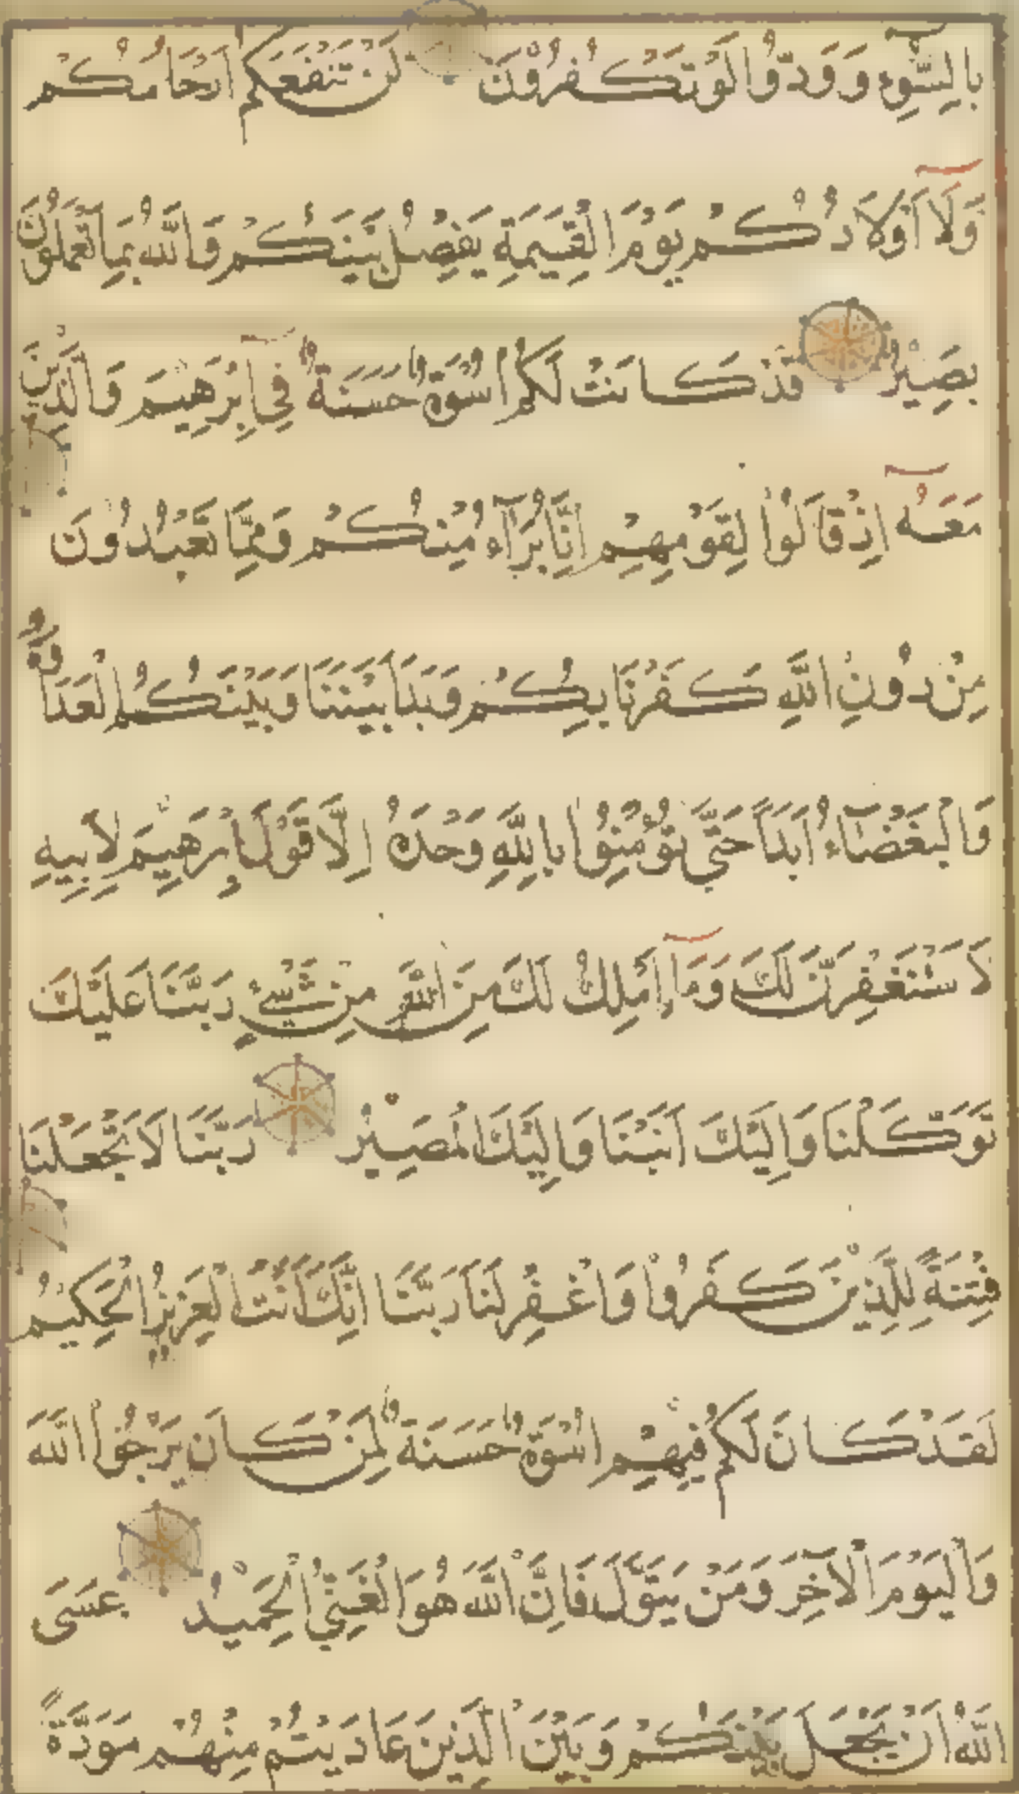 بِالسُّوٓءِ وَوَدُّوا لَوْ تَكْفُرُوْنَ لَنْ تَنْفَعَكُمْ اَرْحَامُكُمْ
وَلَآ اَوْلَادُكُمْ يَوْمَ الْقِيٰمَةِ يَفْصِلُ بَيْنَكُمْ وَاللّٰهُ بِمَا تَعْمَلُوْنَ
بَصِيْرٌ قَدْ كَانَتْ لَكُمْ اُسْوَةٌ حَسَنَةٌ فِيٓ اِبْرٰهِيْمَ وَالَّذِيْنَ
مَعَهُٓ اِذْ قَالُوْا لِقَوْمِهِمْ اِنَّا بُرَآءٰؤُ مِنْكُمْ وَمِمَّا تَعْبُدُوْنَ
مِنْ دُوْنِ اللّٰهِ كَفَرْنَا بِكُمْ وَبَدَا بَيْنَنَا وَبَيْنَكُمُ الْعَدَاوَةُ
وَالْبَغْضَآءُ اَبَدًا حَتّٰى تُؤْمِنُوْا بِاللّٰهِ وَحْدَهُ اِلَّا قَوْلَ اِبْرٰهِيْمَ لِاَبِيْهِ
لَاَسْتَغْفِرَنَّ لَكَ وَمَآ اَمْلِكُ لَكَ مِنَ اللّٰهِ مِنْ شَيْءٍ رَبَّنَا عَلَيْكَ
تَوَكَّلْنَا وَاِلَيْكَ اَنَبْنَا وَاِلَيْكَ الْمَصِيْرُ رَبَّنَا لَا تَجْعَلْنَا
فِتْنَةً لِلَّذِيْنَ كَفَرُوْا وَاغْفِرْ لَنَا رَبَّنَا اِنَّكَ اَنْتَ الْعَزِيْزُ الْحَكِيْمُ
لَقَدْ كَانَ لَكُمْ فِيْهِمْ اُسْوَةٌ حَسَنَةٌ لِمَنْ كَانَ يَرْجُوا اللّٰهَ
وَالْيَوْمَ الْآخِرَ وَمَنْ يَتَوَلَّ فَاِنَّ اللّٰهَ هُوَ الْغَنِيُّ الْحَمِيْدُ عَسَى
اللّٰهُ اَنْ يَجْعَلَ بَيْنَكُمْ وَبَيْنَ الَّذِيْنَ عَادَيْتُمْ مِنْهُمْ مَوَدَّةً